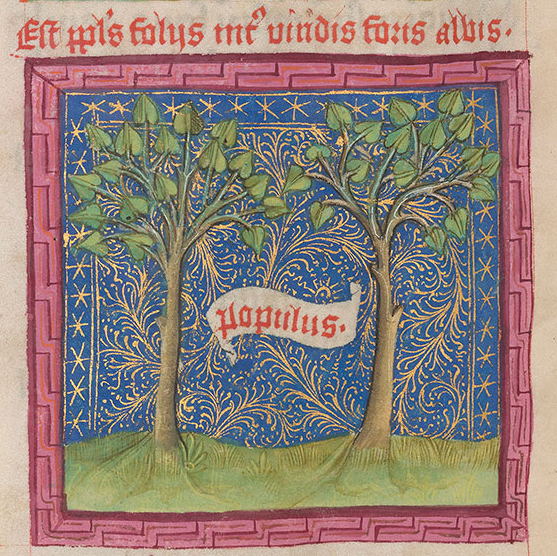 Est ppl's folijs int' viridis foris albis.
populus.